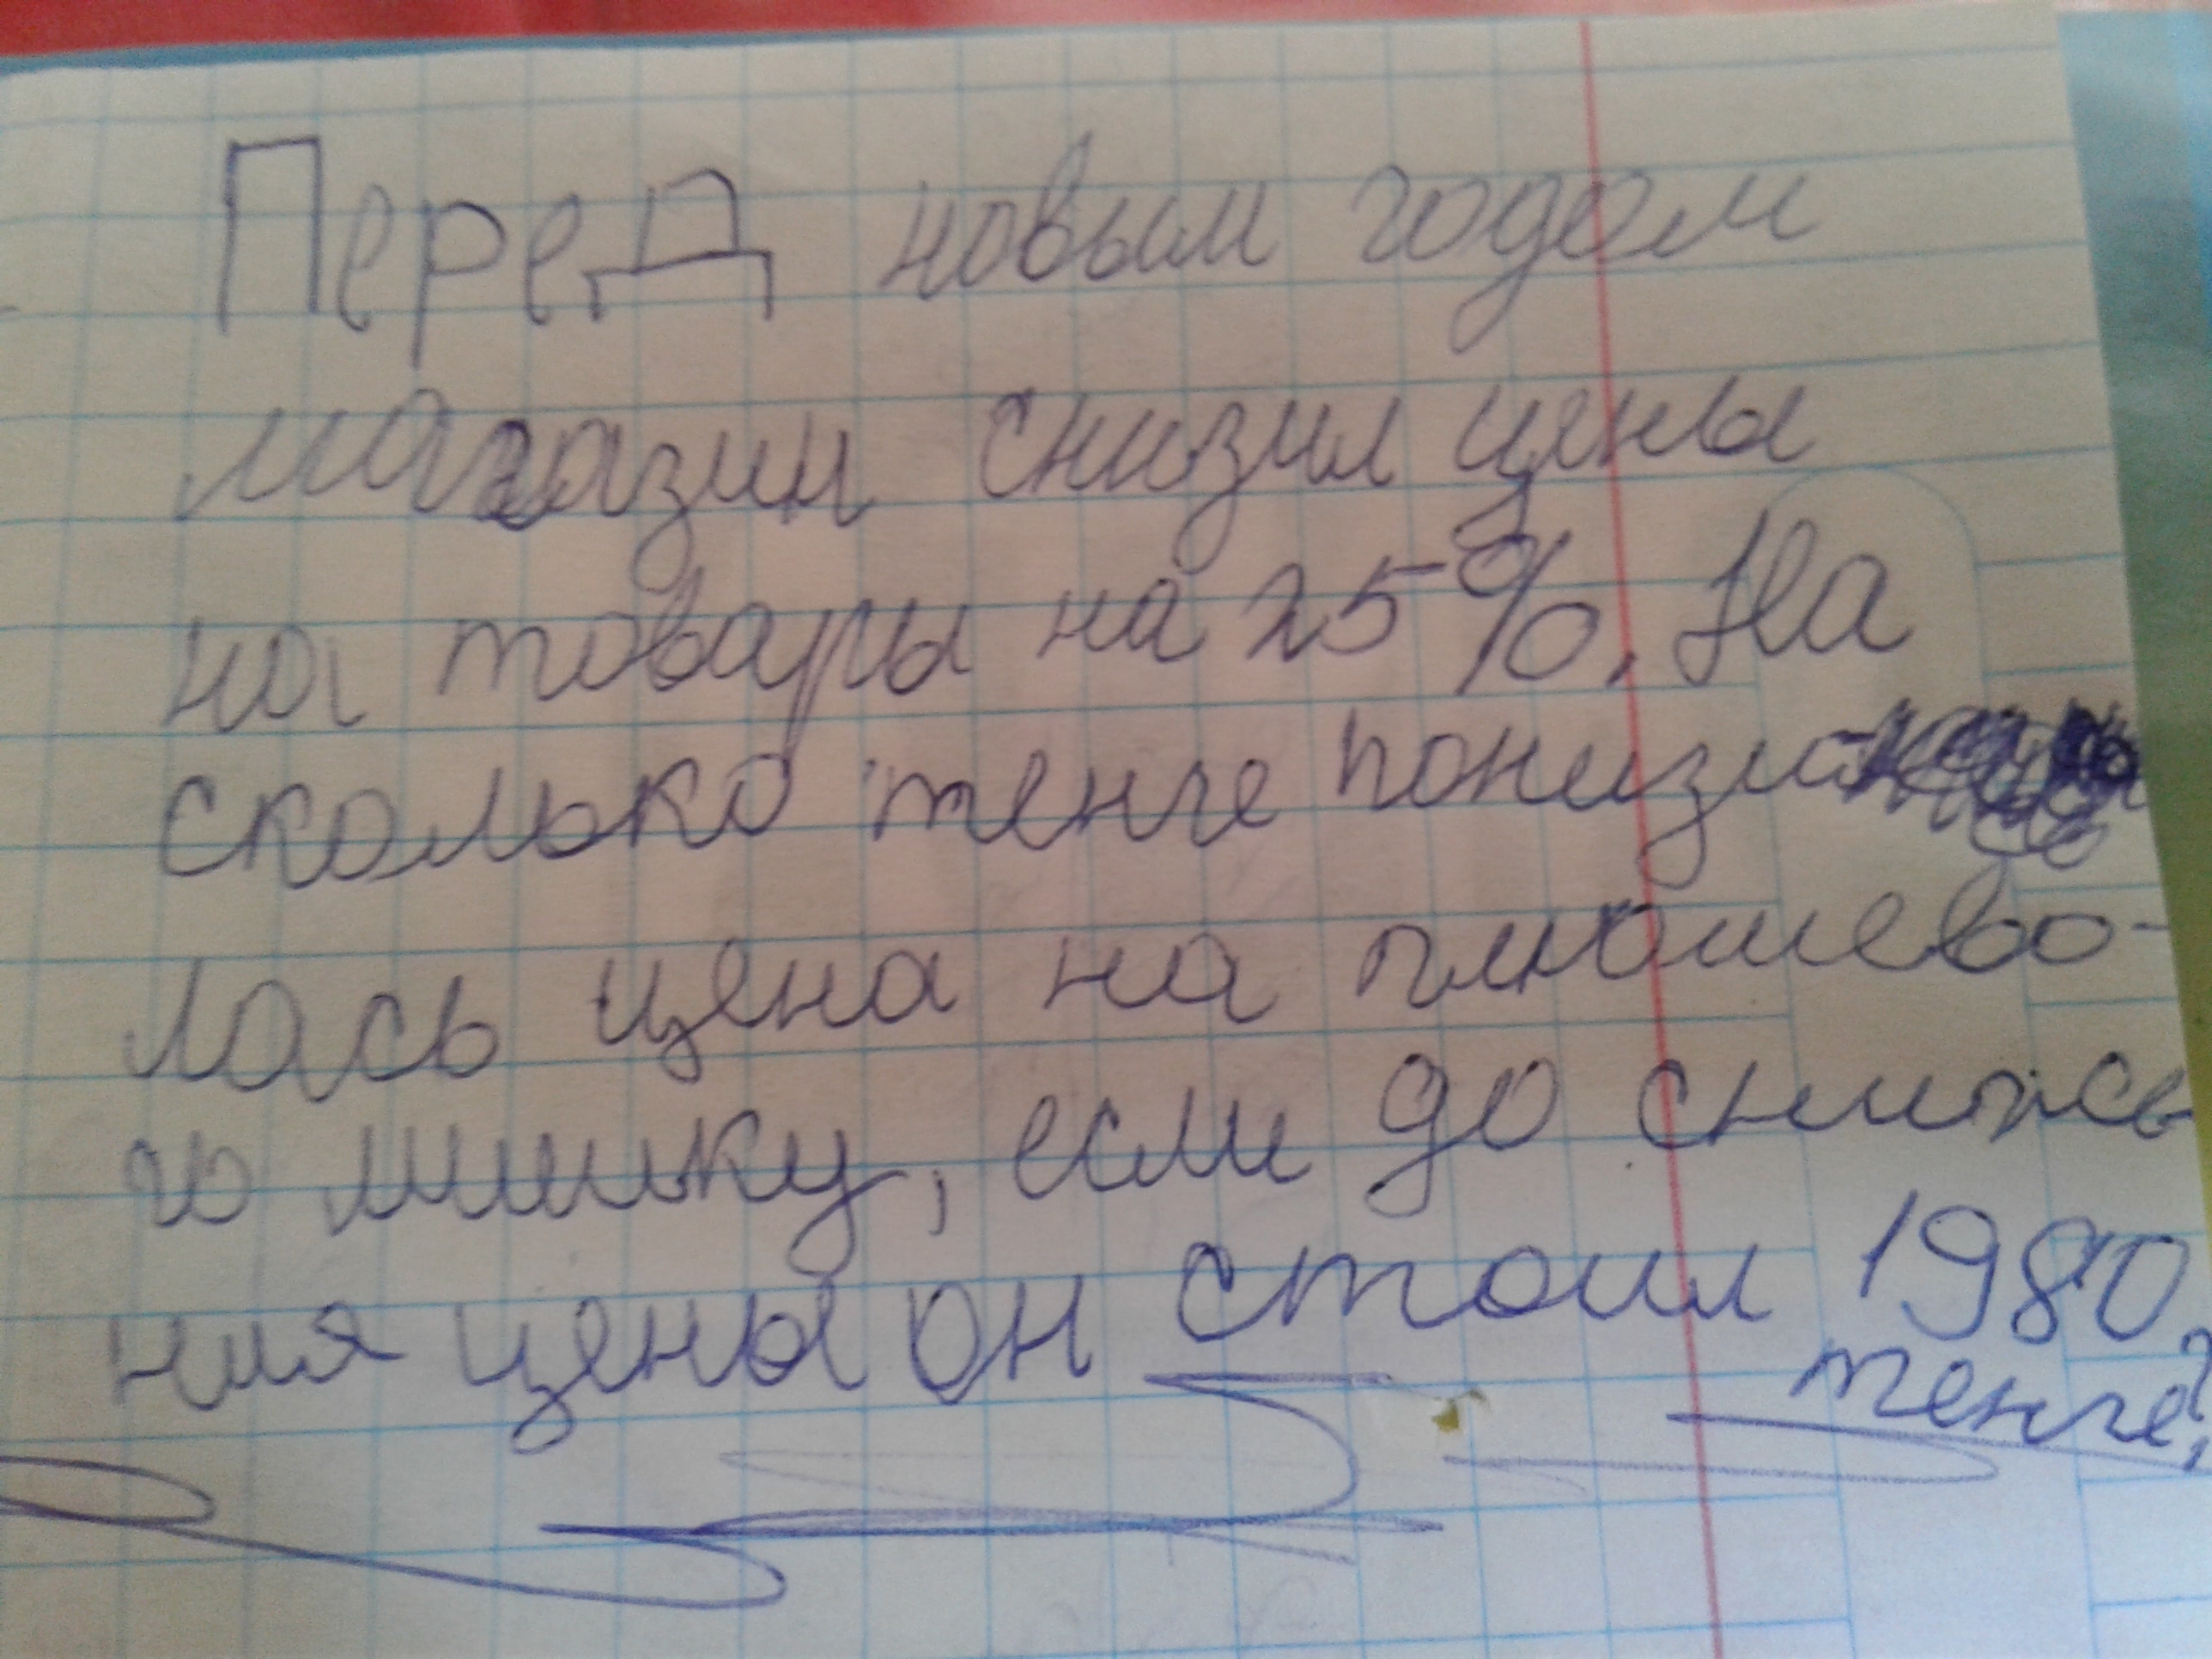 Перед новым годом
магазин снизил цены
на товары на 25%. На
сколько тенге понизи-
лась цена на плюшево-
го мишку, если до сниже
ния цены он стоил 1980
тенге?